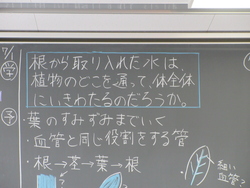 9/
学
根から取り入れた水は、
植物のどこを通って、体全体
にいきわたるのだろうか。
予
・葉のすみずみまでいく
・血管と同じ役割をする管
・根→茎→葉→根
細い
血管?